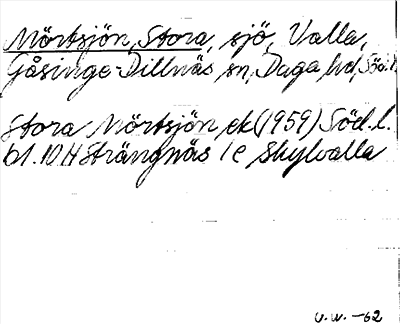 Mörtsjön, Stora, sjö, Valla,
Gåsinge-Dillnäs sn, Daga hd, Söd. l.
Stora Mörtsjön ek (1959) Söd. l.
bl. 10 H Strängnäs 1 c Skylvalla
U.W. -62